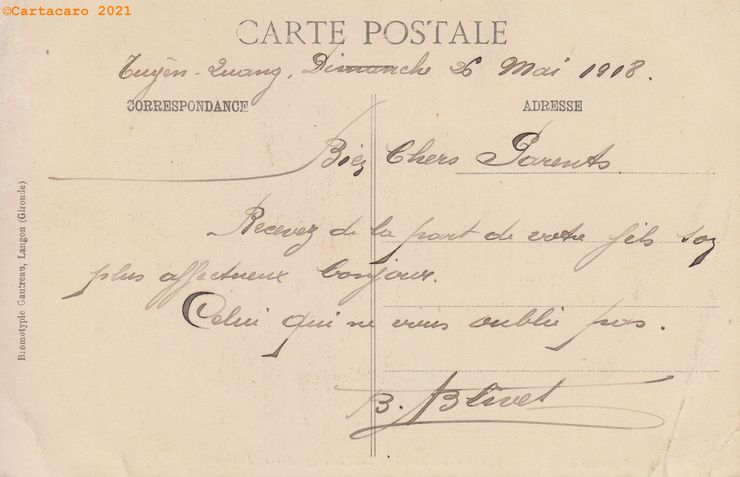 ©Cartacaro 2021
CARTE POSTALE
Tuyên-Quang, Dimanche 26 Mai 1918.
CORRESPONDANCE ADRESSE
Bien Chers Parents
Recevez de la part de votre fils son
plus affectueux bonjour.
Celui qui ne vous oublie pas.
B.
Bromotypie Gautreau, Langon (Gironde)